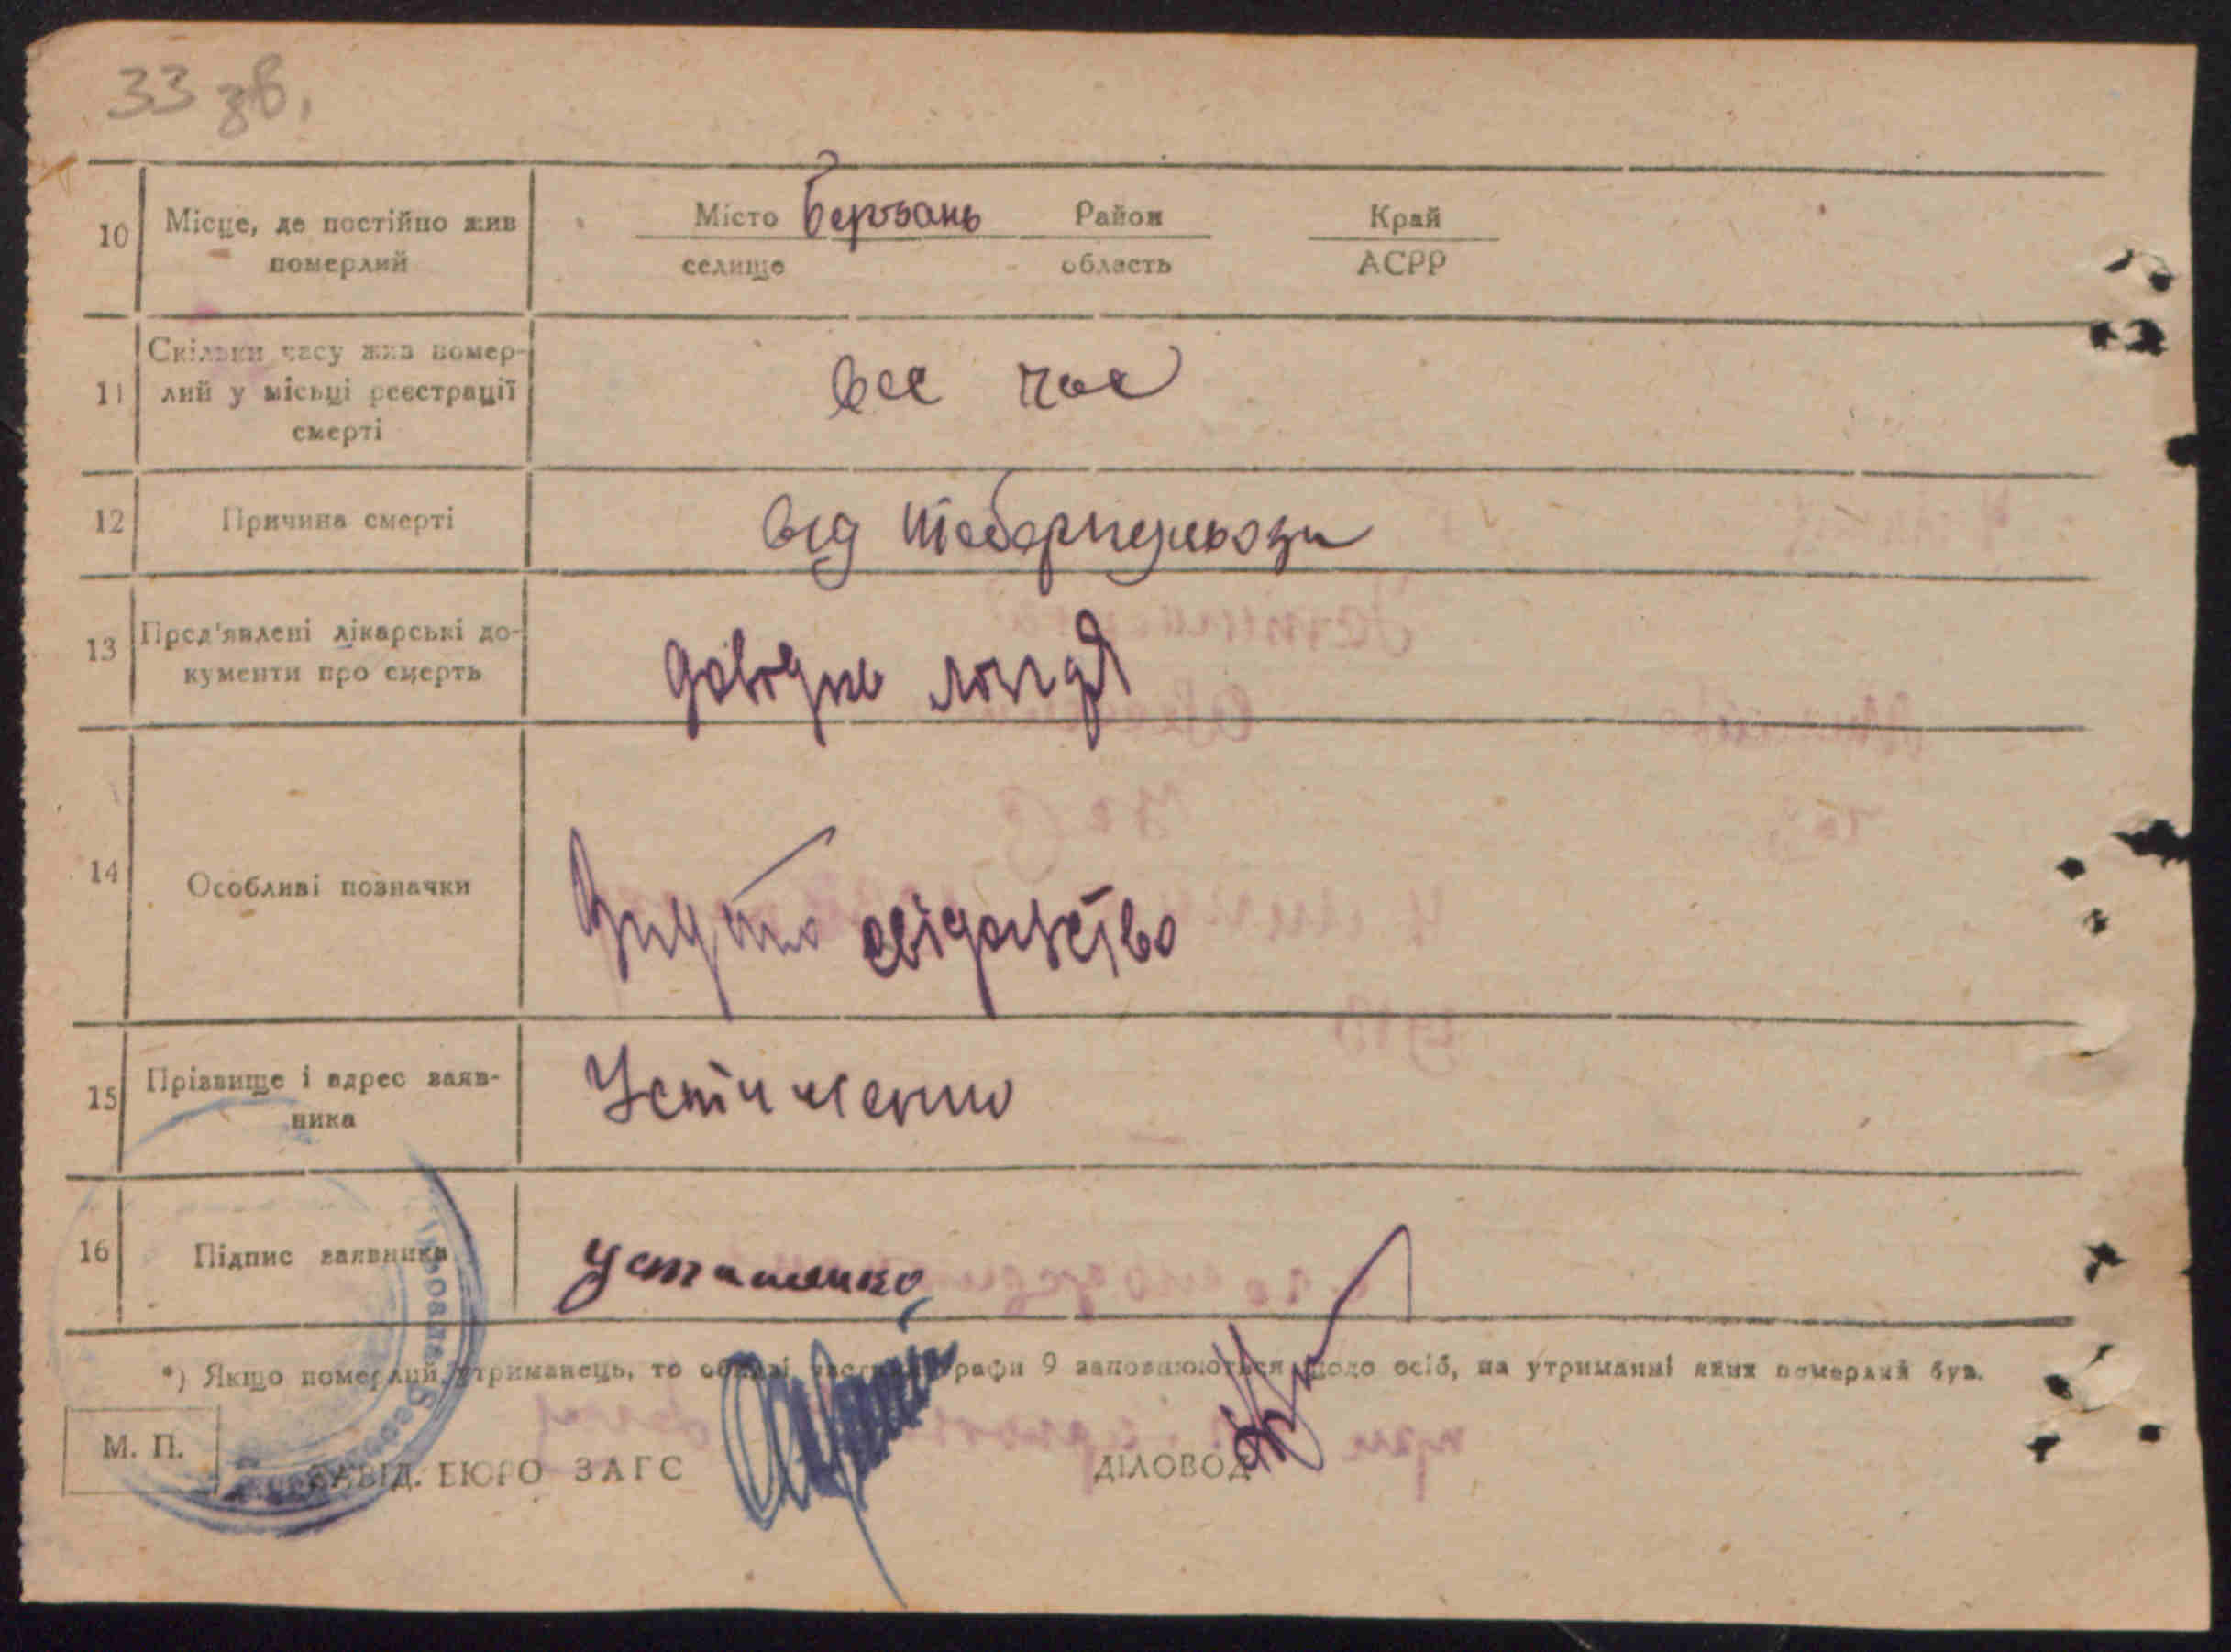 33 зв.
10 Місце, де постійно жив померлий
Місто Березань Район Край
селище область АСРР
11 Скільки часу жив помер-
лий у місьці реєстрації
смерті
весь час
12 Причина смерті
від
13 Пред'явлені лікарські до-
кументи про смерть
довідка
14 Особливі позначки
свідоцтво
15 Прізвище і адрес заяв-
ника
Устименко
16 Підпис заявника
Устименко
*) Якщо померлий утриманець, то обидві частини графи 9 заповнюються щодо осіб, на утриманні яких померлий був.
М. П.
ЗАВІД. БЮРО ЗАГС ДІЛОВОД